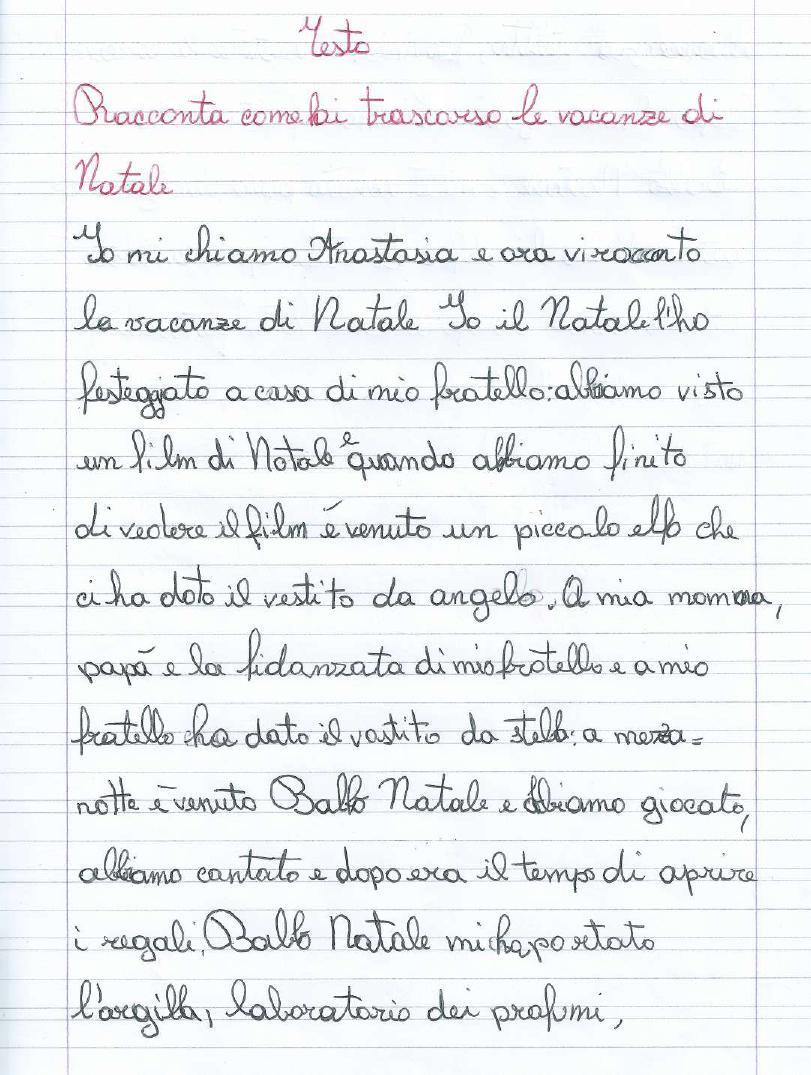 Testo
Racconta come hai trascorso le vacanze di
Natale
Io mi chiamo Anastasia e ora vi racconto
le vacanze di Natale Io il Natale l'ho
festeggiato a casa di mio fratello: abbiamo visto
un film di Natale e quando abbiamo finito
di vedere il film é venuto un piccolo elfo che
ci ha dato il vestito da angelo. A mia mamma,
papá e la fidanzata di mio fratello e a mio
fratello ha dato il vastito da stella: a mezza=
notte é venuto Babbo Natale e abbiamo giocato,
abbiamo cantato e dopo era il tempo di aprire
i regali. Babbo Natale mi ha portato
l'argilla, laboratorio dei profumi,